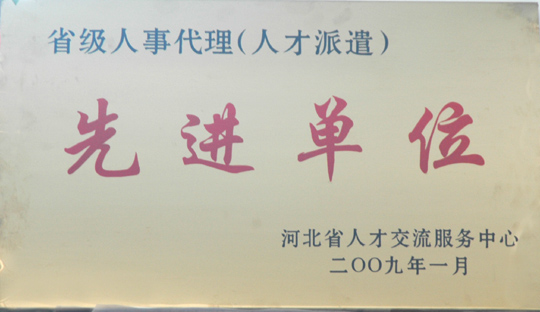 省级人事代理(人才派遣)
先进单位
河北省人才交流服务中心
二〇〇九年一月